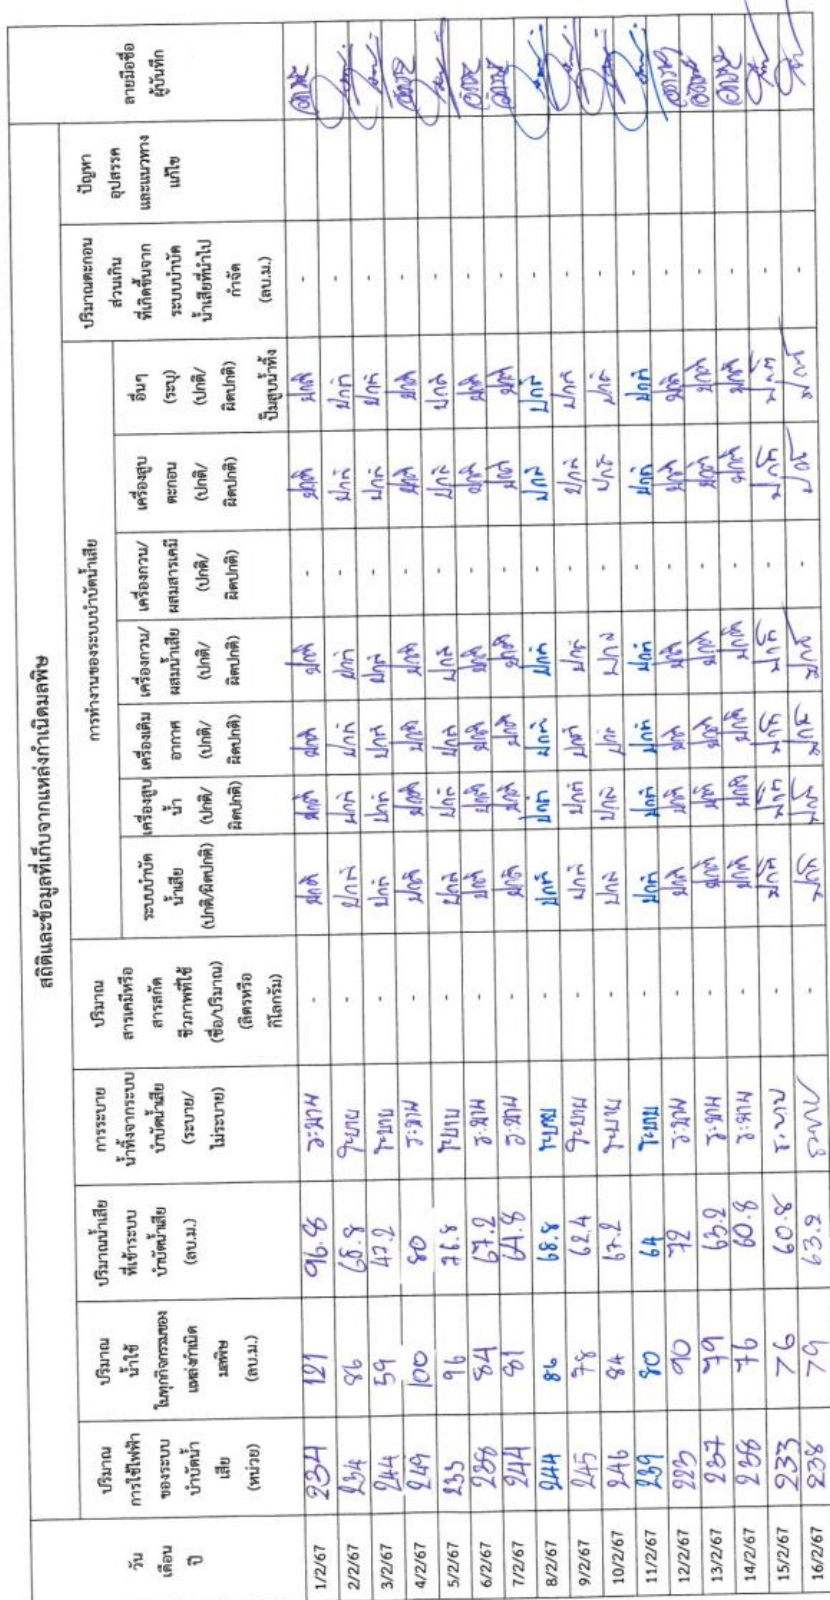 สถิติและข้อมูลที่เก็บจากแหล่งกำเนิดมลพิษ
วัน เดือน ปี
ปริมาณ การใช้ไฟฟ้า ของระบบ บำบัดน้ำ เสีย (หน่วย)
ปริมาณ น้ำใช้ ในทุกกิจกรรมของ แหล่งกำเนิด มลพิษ (ลบ.ม.)
ปริมาณน้ำเสีย ที่เข้าระบบ บำบัดน้ำเสีย (ลบ.ม.)
การระบาย น้ำทิ้งจากระบบ บำบัดน้ำเสีย (ระบาย/ ไม่ระบาย)
ปริมาณ สารเคมีหรือ สารสกัด ชีวภาพที่ใช้ (ชื่อ/ปริมาณ) (ลิตรหรือ กิโลกรัม)
การทำงานของระบบบำบัดน้ำเสีย
ระบบบำบัด น้ำเสีย (ปกติ/ผิดปกติ)
เครื่องสูบ น้ำ (ปกติ/ ผิดปกติ)
เครื่องเติม อากาศ (ปกติ/ ผิดปกติ)
เครื่องกวน/ ผสมน้ำเสีย (ปกติ/ ผิดปกติ)
เครื่องกวน/ ผสมสารเคมี (ปกติ/ ผิดปกติ)
เครื่องสูบ ตะกอน (ปกติ/ ผิดปกติ)
อื่นๆ (ระบุ) (ปกติ/ ผิดปกติ) ปั๊มสูบน้ำทิ้ง
ปริมาณตะกอน ส่วนเกิน ที่เกิดขึ้นจาก ระบบบำบัด น้ำเสียที่นำไป กำจัด (ลบ.ม.)
ปัญหา อุปสรรค และแนวทาง แก้ไข
ลายมือชื่อ ผู้บันทึก
1/2/67 234 121 96.8 ระบาย - ปกติ ปกติ ปกติ ปกติ - ปกติ ปกติ -
2/2/67 234 86 68.8 ระบาย - ปกติ ปกติ ปกติ ปกติ - ปกติ ปกติ -
3/2/67 244 59 47.2 ระบาย - ปกติ ปกติ ปกติ ปกติ - ปกติ ปกติ -
4/2/67 249 100 80 ระบาย - ปกติ ปกติ ปกติ ปกติ - ปกติ ปกติ -
5/2/67 233 96 76.8 ระบาย - ปกติ ปกติ ปกติ ปกติ - ปกติ ปกติ -
6/2/67 238 84 67.2 ระบาย - ปกติ ปกติ ปกติ ปกติ - ปกติ ปกติ -
7/2/67 244 81 64.8 ระบาย - ปกติ ปกติ ปกติ ปกติ - ปกติ ปกติ -
8/2/67 244 86 68.8 ระบาย - ปกติ ปกติ ปกติ ปกติ - ปกติ ปกติ -
9/2/67 245 78 62.4 ระบาย - ปกติ ปกติ ปกติ ปกติ - ปกติ ปกติ -
10/2/67 246 84 67.2 ระบาย - ปกติ ปกติ ปกติ ปกติ - ปกติ ปกติ -
11/2/67 239 80 64 ระบาย - ปกติ ปกติ ปกติ ปกติ - ปกติ ปกติ -
12/2/67 223 90 72 ระบาย - ปกติ ปกติ ปกติ ปกติ - ปกติ ปกติ -
13/2/67 237 79 63.2 ระบาย - ปกติ ปกติ ปกติ ปกติ - ปกติ ปกติ -
14/2/67 238 76 60.8 ระบาย - ปกติ ปกติ ปกติ ปกติ - ปกติ ปกติ -
15/2/67 233 76 60.8 ระบาย - ปกติ ปกติ ปกติ ปกติ - ปกติ ปกติ -
16/2/67 238 79 63.2 ระบาย - ปกติ ปกติ ปกติ ปกติ - ปกติ ปกติ -